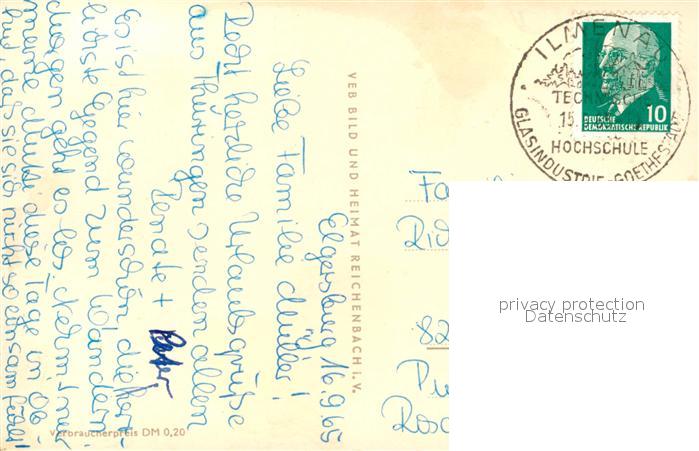 Elgersburg 16.9.65
Liebe Familie Müller!
Recht herzliche Urlaubsgrüße
aus Thüringen senden allen
Renate + Peter
Es ist hier wunderschön, die herr-
lichste Gegend zum Wandern.
Morgen geht es los. Nehmt immer
meine Mutti diese Tage in Ob-
hut, daß sie sich nicht so einsam fühlt!
VEB BILD UND HEIMAT REICHENBACH i. V.
Verbraucherpreis DM 0,20
ILMENAU
TECHNISCHE
15.
HOCHSCHULE
GLASINDUSTRIE-GOETHESTADT
10
DEUTSCHE
DEMOKRATISCHE REPUBLIK
Fa
Rich
82
Ros
privacy protection
Datenschutz